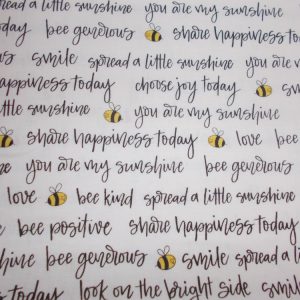 spread a little sunshine you are my sunshine
today bee generous share happiness
smile spread a little sunshine
happiness today choose joy today
little sunshine you are my sunshine
share happiness today love bee
you are my sunshine bee generous
love bee kind spread a little sunshine
bee positive share happiness today
shine bee generous smile spread a li
today look on the bright side smile